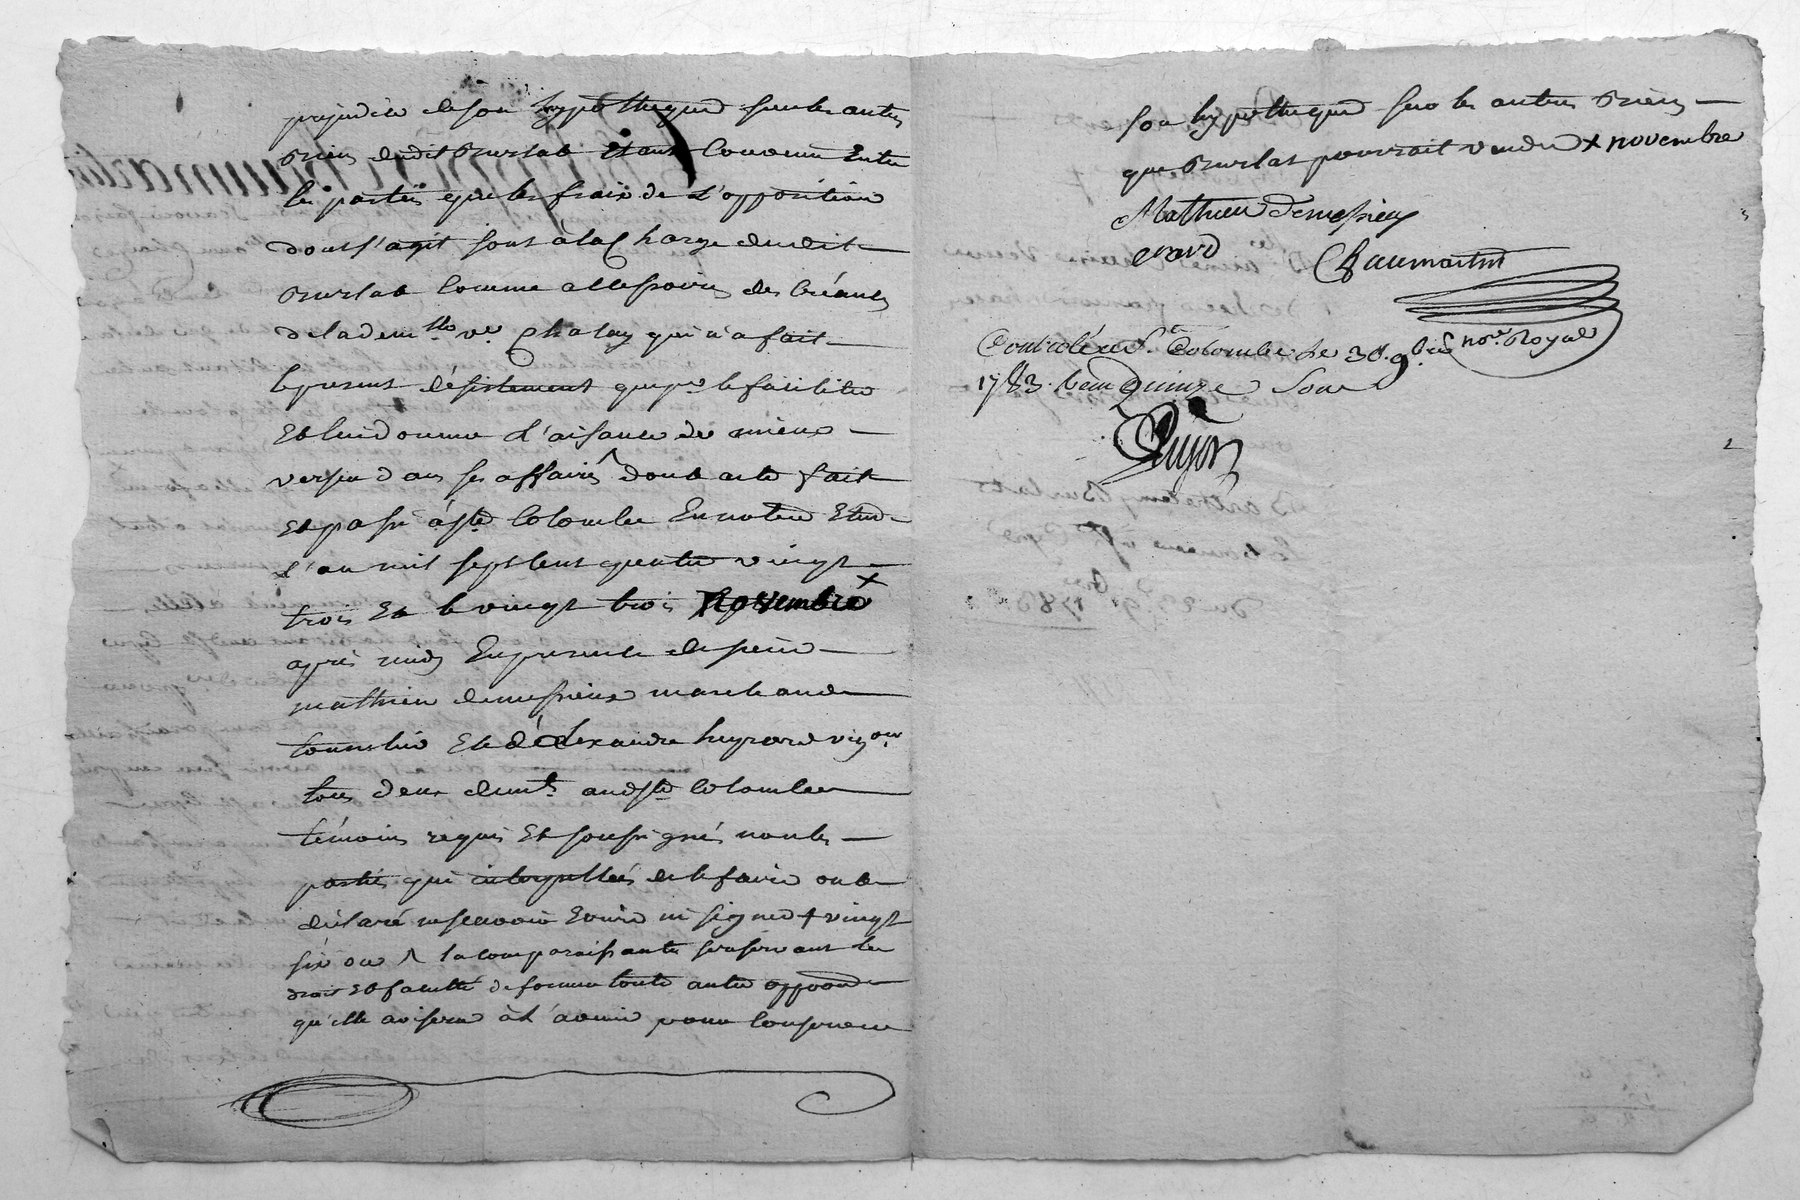 prejudice de son hypotheque sur les autres
biens dudit Burlat etant convenu Entre
les parties que les frais de L'opposition
dont s'agit sont à la Charge dudit
Burlat Comme accessoires des Créances
de lademlle ve Chalay qui n'a fait
le present désistement que pr le faciliter
Et lui donner L'aisance de mieux
verser dans ses affaires ^ dont acte fait
Et passé à Ste Colombe En notre Etude
L'an mil sept cent quatre vingt
trois Et le vingt trois Novembre x
après midy En presence de sieur
mathieu demessieux marchand
Et de alexandre heyrard vigon
tous deux demts audt Ste Colombe
témoins requis Et soussignés non les
parties qui interpellées de le faire ont
déclaré ne sçavoir Ecrire ni signer + vingt
six ou ^ la comparaissante se reservant les
droit Et faculté de former toute autre opposon
qu'elle avisera à L'avenir pour Conserver
son hypotheque sur les autres Biens
que Burlat pourrait vendre x novembre
Mathieu Demessieux
erard
Chaumartin
nore Royal
Controlé à Ste Colombe Le 30 9bre
1783. Reçu Quinze Sous
Guyon